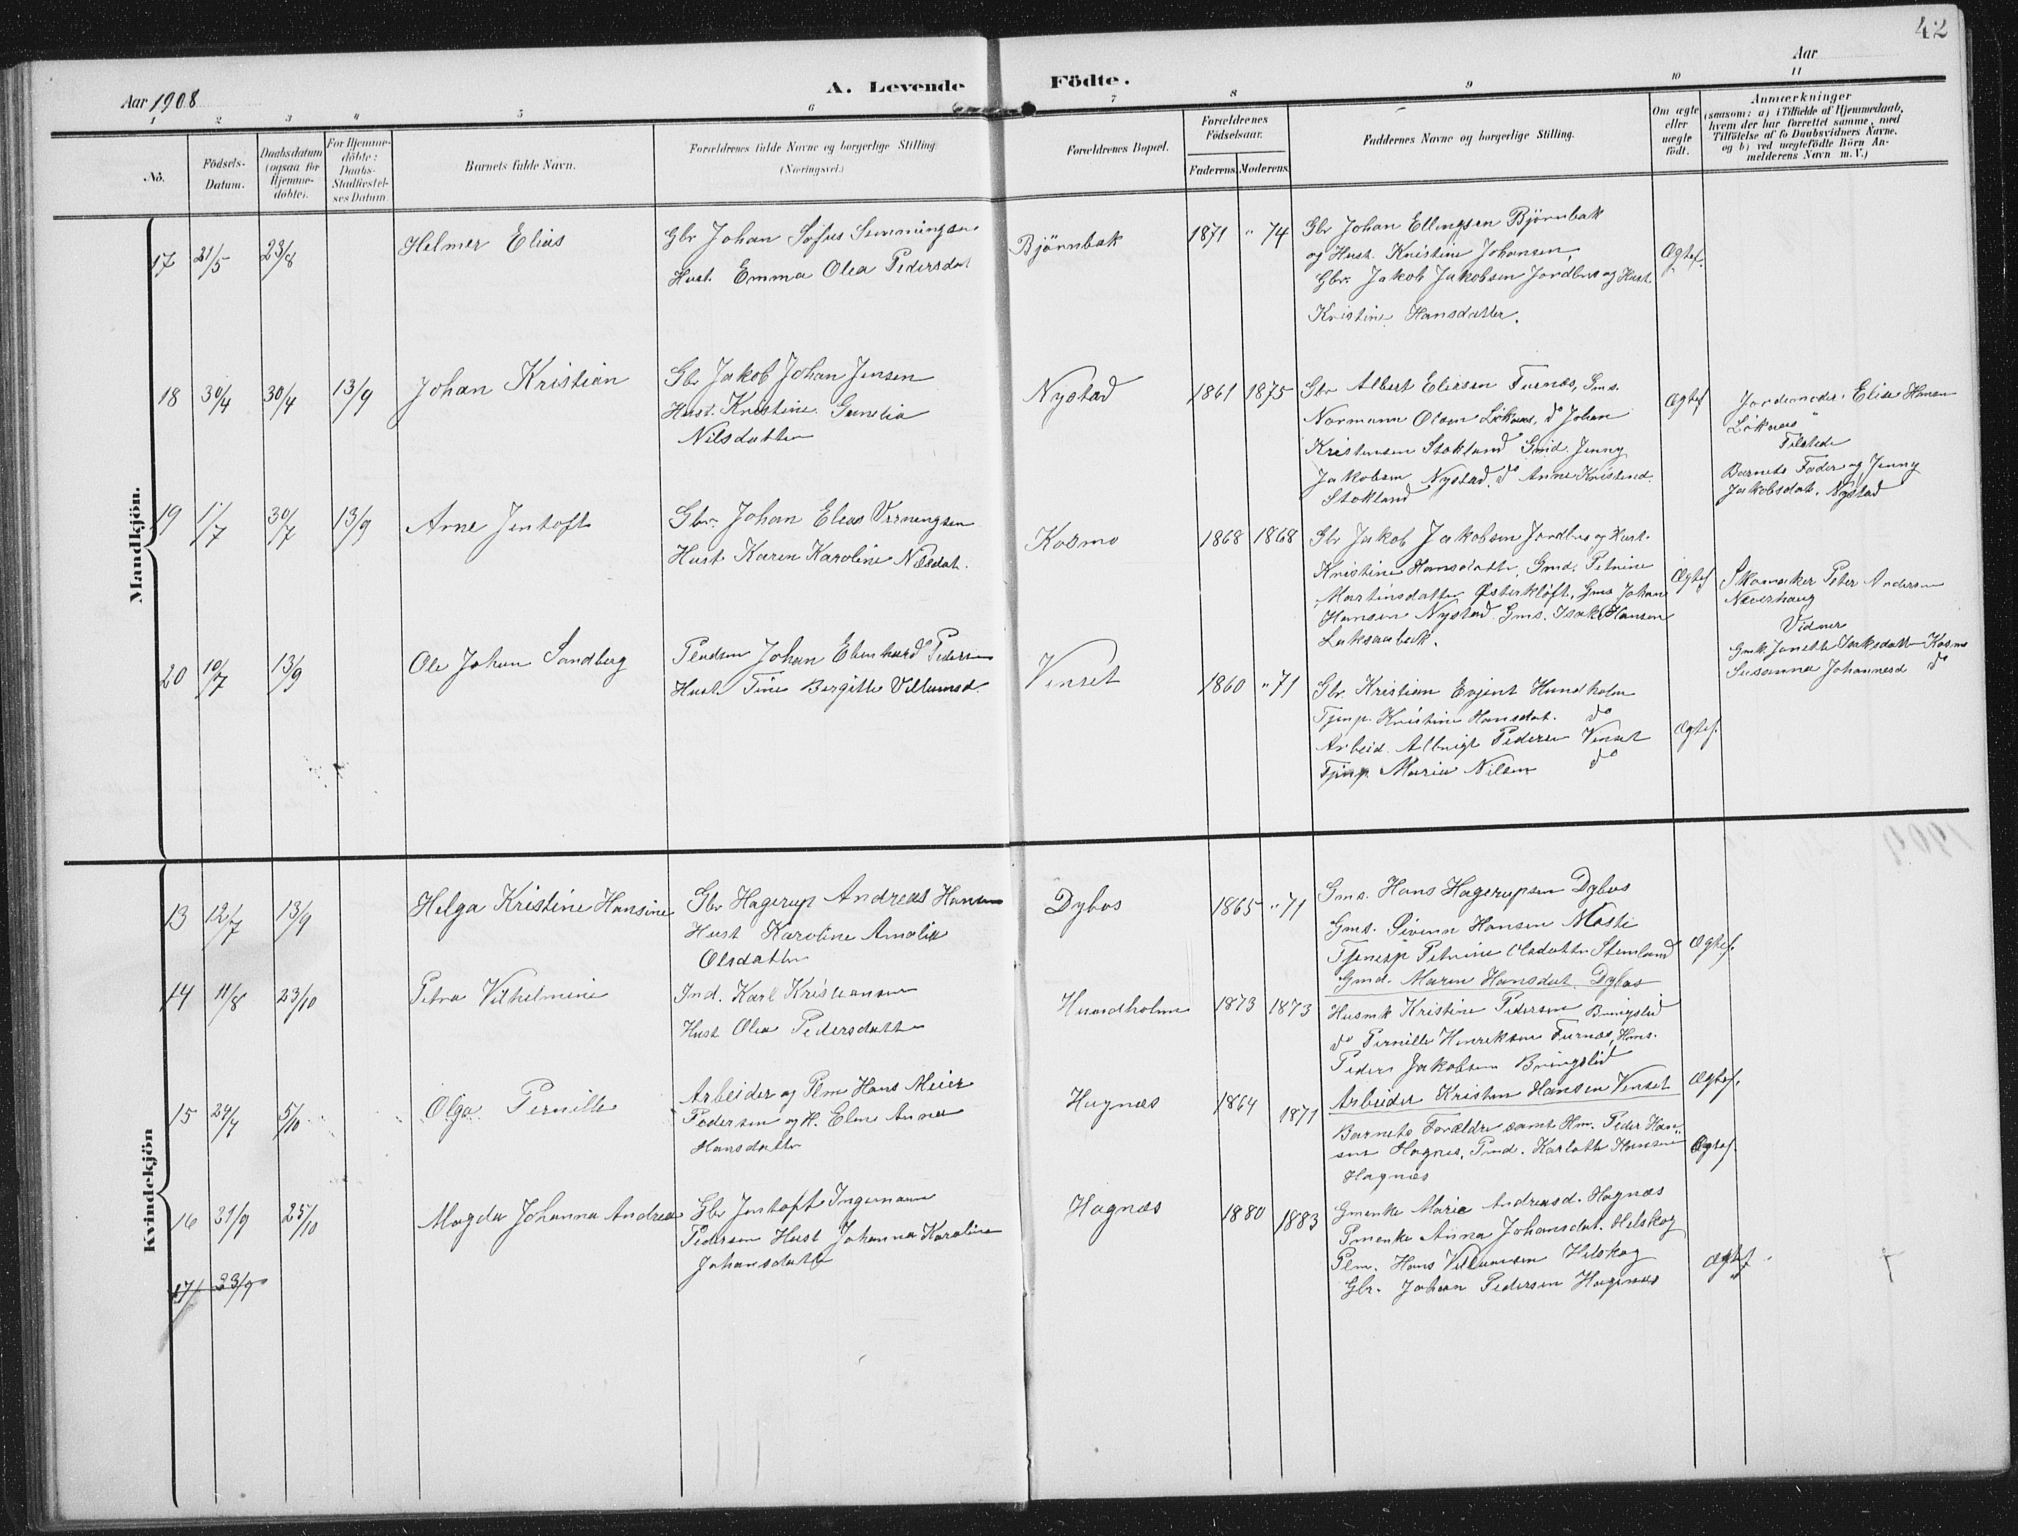 42
Aar 1908
A. Levende Födte.
Aar
1 2 3 4 5 6 7 8 9 10 11
No.
Födsels-
Datum.
Daabsdatum
(ogsaa for
Hjemme-
döbte).
For Hjemme-
döbte:
Daabs-
Stadfæstel-
ses Datum.
Barnets fulde Navn.
Forældrenes fulde Navne og borgerlige Stilling
(Næringsvei.)
Forældrenes Bopæl.
Forældrenes
Födselsaar.
Faderens. Moderens.
Faddernes Navne og borgerlige Stilling.
Om ægte
eller
uægte
födt.
Anmærkninger
(saasom: a) i Tilfælde af Hjemmedaab,
hvem der har forrettet samme, med
Tilföielse af to Daabsvidners Navne.
og b) ved uægtefödte Börn An-
melderens Navn m. V.)
Mandkjön.
17 21/5 23/8
Helmer Elias
Gbr Johan Sofus Simmingsen
Hust. Emma Olea Pedersdat
Bjørnbak
1871 " 74
Gbr Johan Ellingsen Bjørnbak
og Hust. Kristine Johansen,
Gbr. Jakob Jakobsen Jordbru og Hust.
Kristine Hansdatter.
Ægtef.
18 30/4 30/4 13/9
Johan Kristian
Gbr Jakob Johan Jensen
Hust. Kristine Gunelia
Nilsdatter
Nystad
1861 1875
Gbr Albert Eliesen Furnæs, Gms.
Normann Olsen Løknæs, do Johan
Kristensen Stokland Gmd. Jenny
Jakobsen Nystad, do Anne Kristend.
Stokland
Ægtef
Jordemoder Elise Hansen
Løknæs
Tilstede
Barnets Fader og Jenny
Jakobsdat. Nystad
19 11/7 30/7 13/9
Arne Jentoft
Gbr. Johan Elias Verningsen
Hust Karen Karoline Nilsdat.
Kosmo
1868 1868
Gbr Jakob Jakobsen Jordbru og Hust.
Kristine Hansdatter, Gmd. Petrine
Martinsdatter Østerkløft, Gms Johan
Hansen Nystad Gms. Isak Hansen
Laksaabak.
Ægtef
Skomaker Peter Andersen
Næverhaug
Vidner
Gmk. Janette Isaksdatter Kosmo
Susanna Johannesd do
20 10/7 13/9
Ole Johan Sandberg
Pladsm Johan Edenhard Peders
Hust Tine Bergitte Villumsd.
Venset
1860 " 71
Gbr. Kristian Evjent Hundholm
Tjenp. Kristine Hansdat. do
Arbeid. Albrigt Pedersen Venset
Tjenp Marie Nilsen do
Ægtef.
Kvindekjön
13 12/7 13/9
Helga Kristine Hansine
Gbr Hagerup Andreas Hansen
Hust Karoline Amalie
Olsdatter
Dybos
1865 " 71
Gms. Hans Hagerupsen Dybos
Gms. Sivenn Hansen Moste
Tjenesp Petrine Olsdatter Stemland
Gmd. Maren Hansdat. Dybos
Ægtef.
14 11/8 23/10
Petra Vilhelmine
Ind. Karl Kristiansen
Hust Olea Pedersdatter
Hundholmen
1873 1873
Husmk Kristine Pedersen Bringslid
do Pernille Henriksen Furnæs, Hms.
Peder Jakobsen Bringslid
Arbeider Kristen Hansen Venset
Ægtef.
15 24/7 5/10
Olga Pernille
Arbeider og Plm Hans Meier
Pedersen og H. Elen Anna
Hansdatter
Hagnæs
1864 1871
Barnets Forældre samt Hm. Peder Han-
sen Hagnes, Pmd. Karlotte Hansen
Hagnæs
Ægtef.
16 21/9 25/10
Magda Johanna Andrea
Gbr Jentoft Ingemann
Pedersen Hust Johanna Karoline
Johansdatter
Hagnæs
1880 1883
Gmenke Marie Andreasd. Hagnæs
Pmenke Anna Johansdat. Hilskog
Plm. Hans Villumsen Hilskog
Gbr. Johan Pedersen Hagnæs
Ægtef
17 23/9